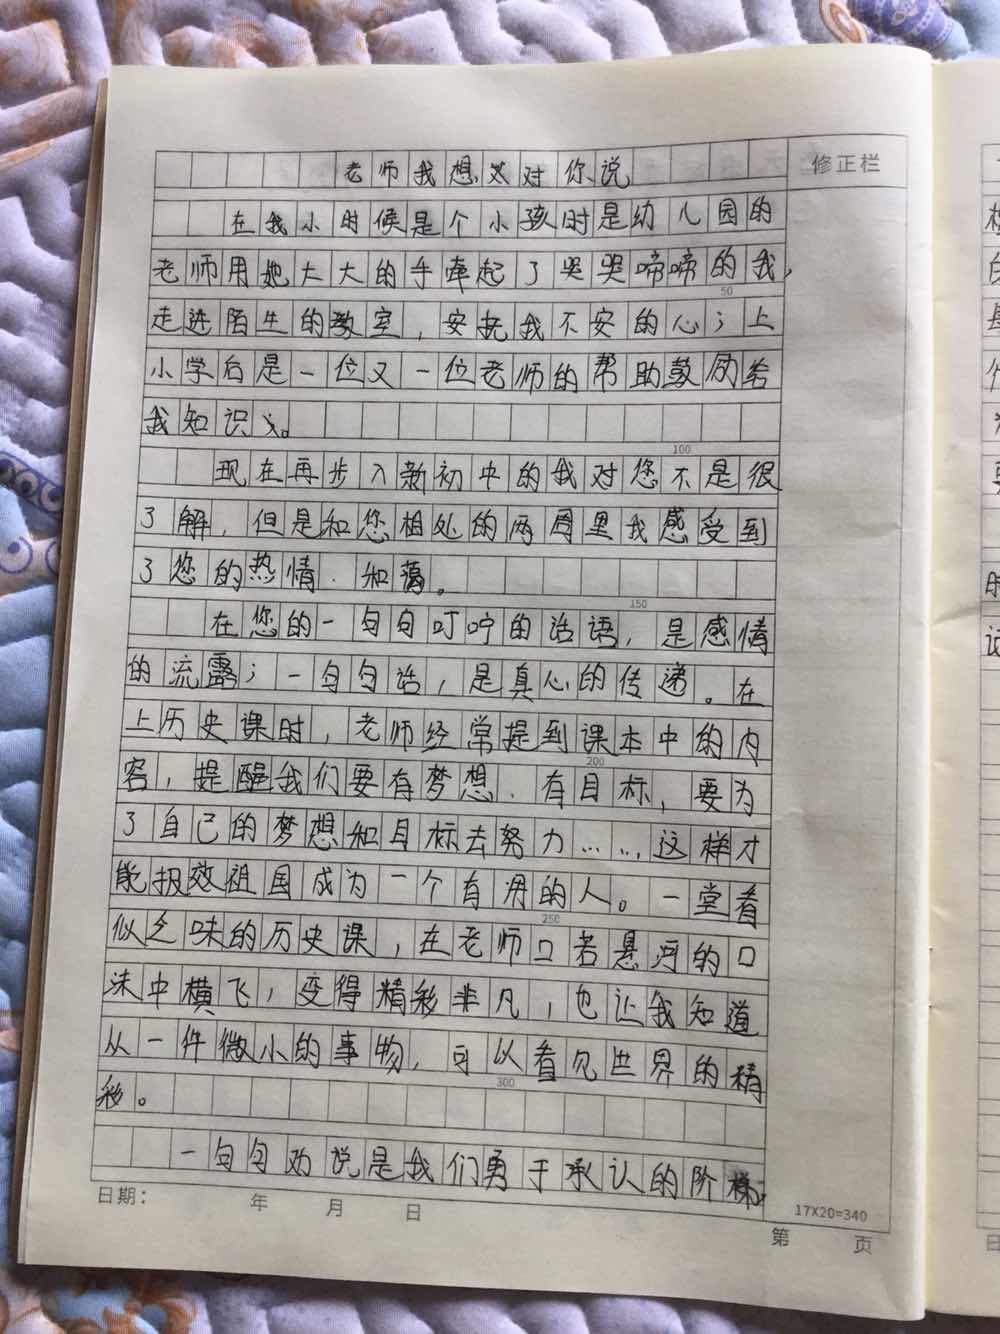 老师我想对你说
修正栏
在我小时候是个小孩时是幼儿园的
老师用她大大的手牵起了哭哭啼啼的我,
50
走进陌生的教室，安抚我不安的心；上
小学后是一位又一位老师的帮助鼓励给
我知识。
100
现在再步入新初中的我对您不是很
了解，但是和您相处的两周里我感受到
了您的热情、和蔼。
150
在您的一句句叮咛的话语，是感情
的流露；一句句话，是真心的传递。在
上历史课时，老师经常提到课本中的内
200
容，提醒我们要有梦想、有目标，要为
了自己的梦想和目标去努力……这样才
能报效祖国成为一个有用的人。一堂看
250
似乏味的历史课，在老师口若悬河的口
沫中横飞，变得精彩非凡，也让我知道
从一件微小的事物，可以看见世界的精
300
彩。
一句句劝说是我们勇于承认的阶梯。
17X20=340
日期： 年 月 日
第 页